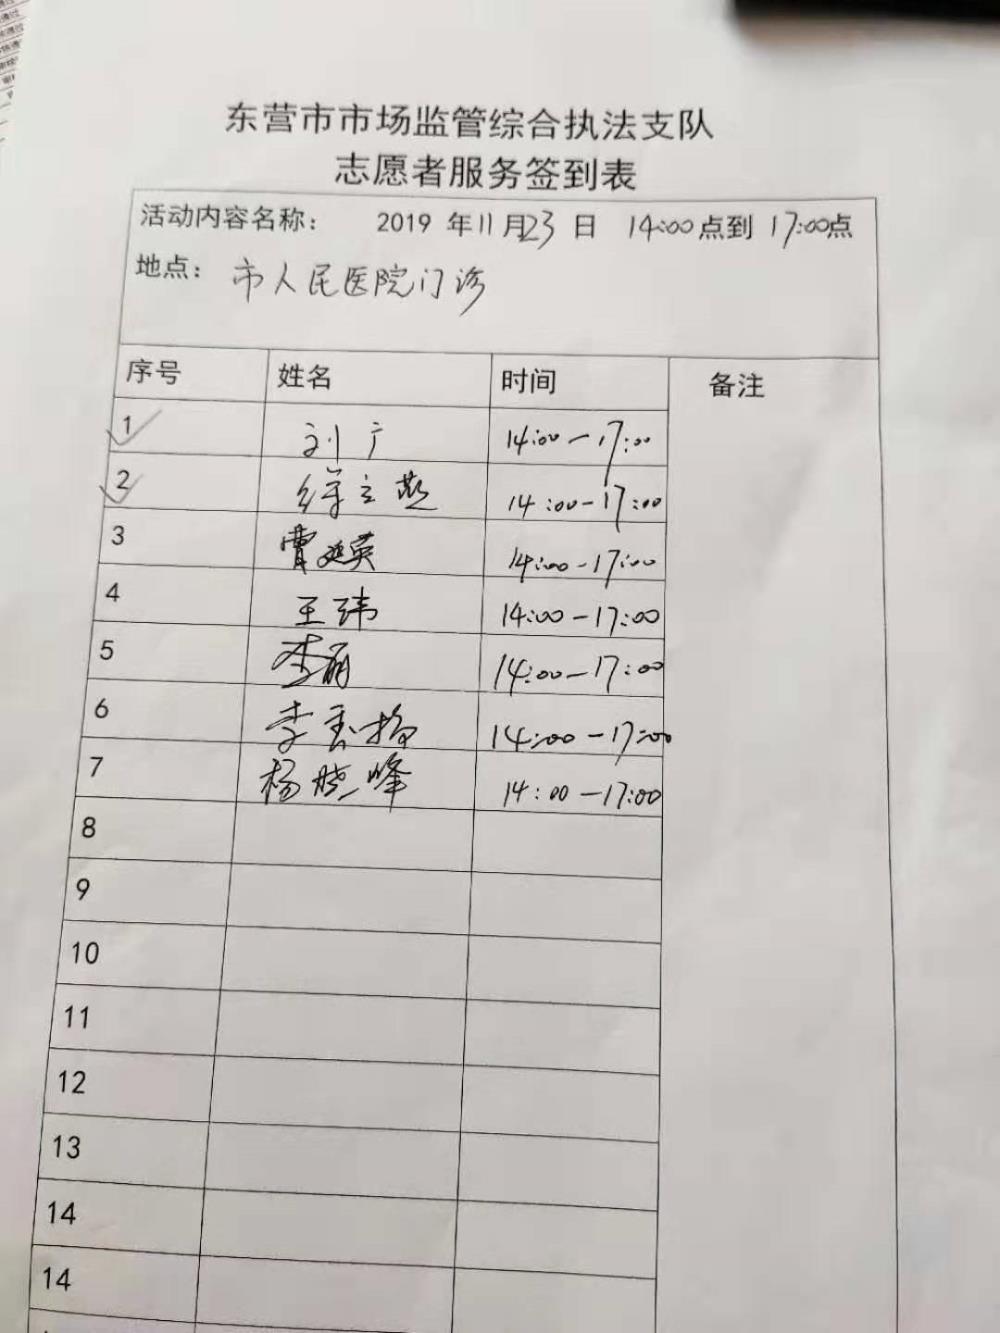 东营市市场监管综合执法支队
志愿者服务签到表
活动内容名称： 2019 年11月23日 14:00点到 17:00点
地点： 市人民医院门诊
序号 姓名 时间 备注
1 刘广 14:00-17:00
2 徐立燕 14:00-17:00
3 曹延英 14:00-17:00
4 王玮 14:00-17:00
5 李丽 14:00-17:00
6 李 14:00-17:00
7 杨晓峰 14:00-17:00
8
9
10
11
12
13
14
14